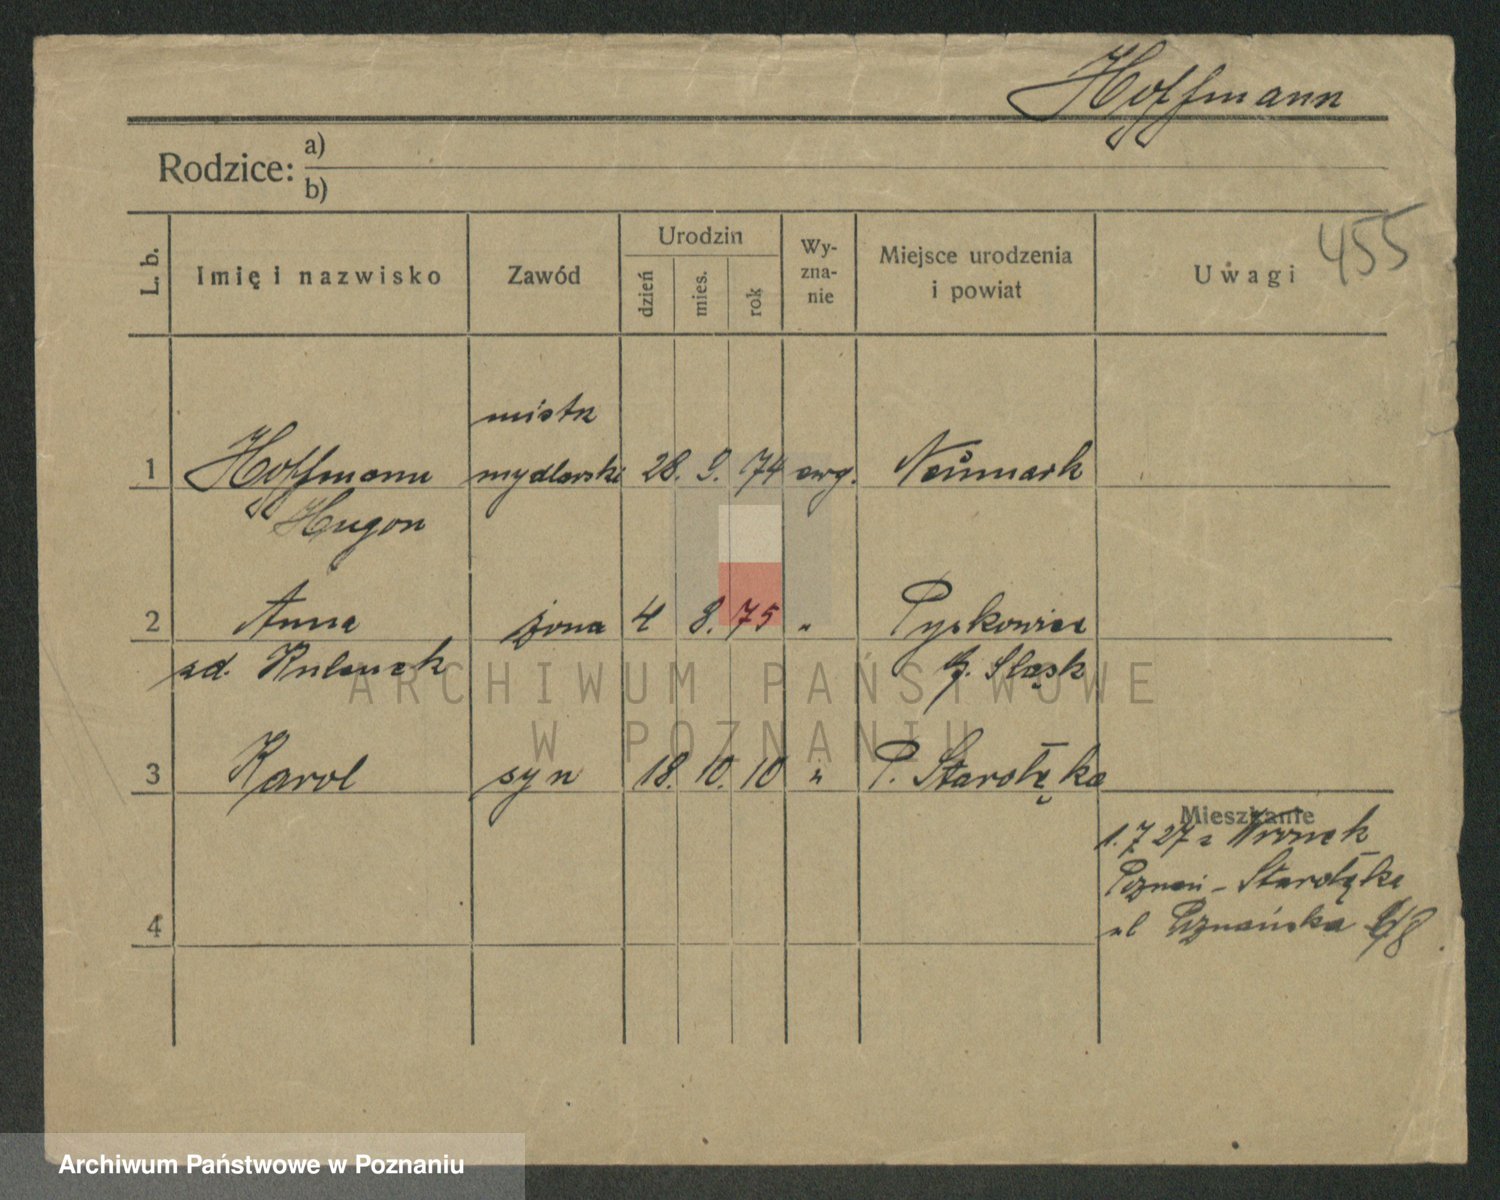 Hoffmann
Rodzice: a)
b)
455
L. b. Imię i nazwisko Zawód Urodzin dzień mies. rok Wy-zna-nie Miejsce urodzenia i powiat Uwagi
mistrz
1 Hoffmann mydlarski 28. 9. 74 ewg. Neumark
Hugon
2 Anna żona 4 8. 75 " Pyskowice
zd. G. Śląsk
3 Karol syn 18. 10. 10 " P. Starołęka
Mieszkanie
1. 7 27 z Wronek
Poznań - Starołęka
4 ul Poznańska
ARCHIWUM PAŃSTWOWE
W POZNANIU
Archiwum Państwowe w Poznaniu